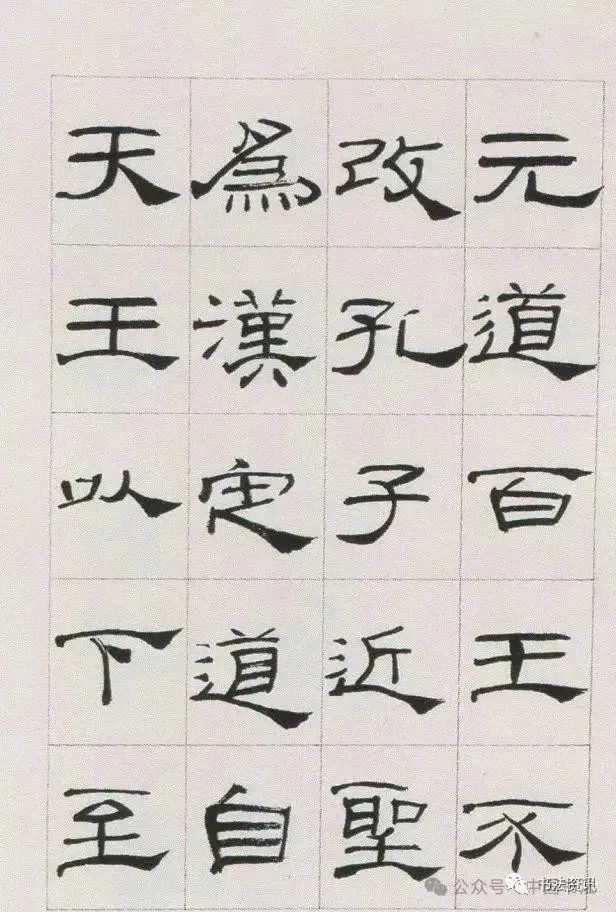 元道百王不
改孔子近聖
為漢定道自
天王以下至
公众号·中国书法
书法资讯